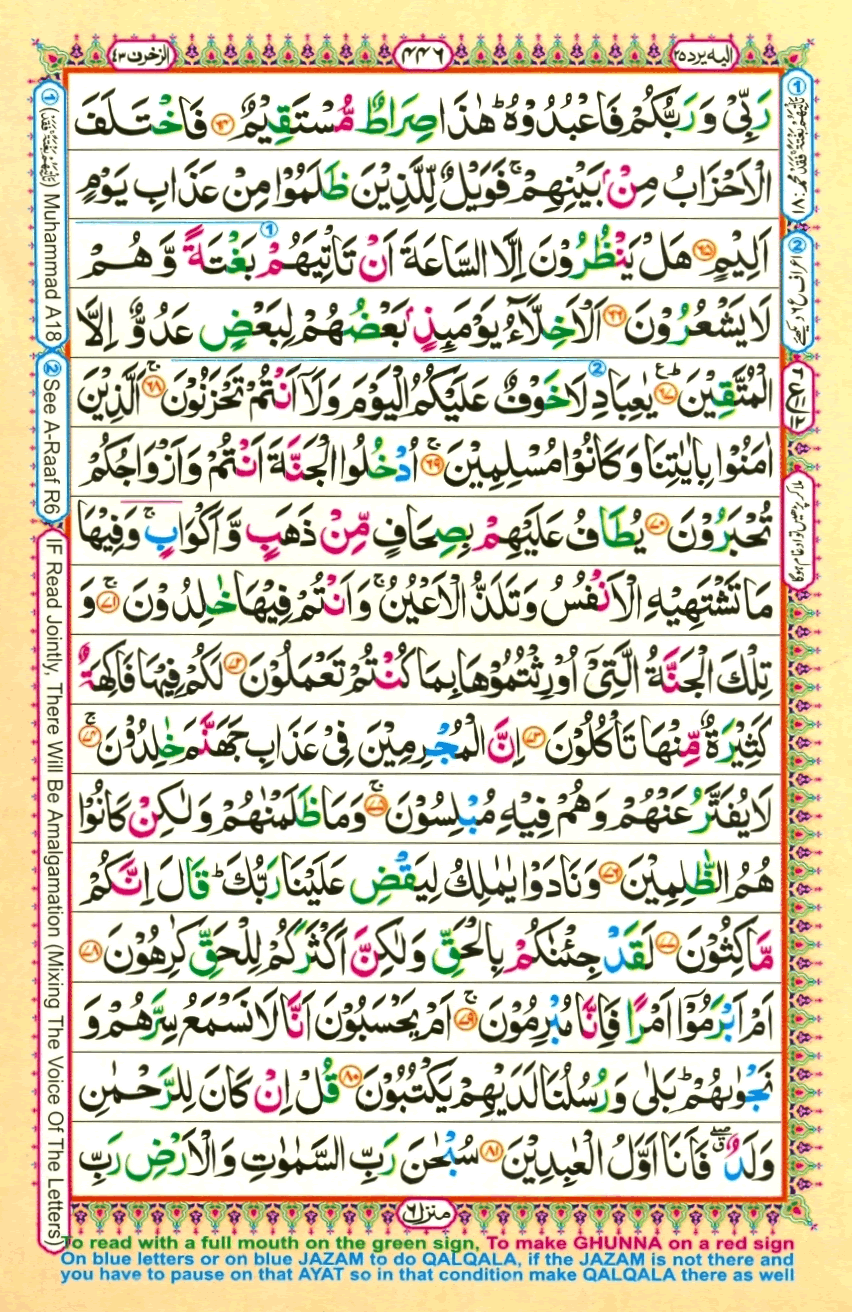 الزخرف ٤٣
٤٤٦
اليه يرد ٢٥
رَبِّىْ وَرَبُّكُمْ فَاعْبُدُوْهُ ؕ هٰذَا صِرَاطٌ مُّسْتَقِيْمٌ ﴿۶۴﴾ فَاخْتَلَفَ
الْاَحْزَابُ مِنْۢ بَيْنِهِمْ ۚ فَوَيْلٌ لِّلَّذِيْنَ ظَلَمُوْا مِنْ عَذَابِ يَوْمٍ
اَلِيْمٍ ﴿۶۵﴾ هَلْ يَنْظُرُوْنَ اِلَّا السَّاعَةَ اَنْ تَاْتِيَهُمْ بَغْتَةً وَّ هُمْ
لَا يَشْعُرُوْنَ ﴿۶۶﴾ اَلْاَخِلَّآءُ يَوْمَىِٕذٍۭ بَعْضُهُمْ لِبَعْضٍ عَدُوٌّ اِلَّا
الْمُتَّقِيْنَ ﴿۶۷﴾ يٰعِبَادِ لَا خَوْفٌ عَلَيْكُمُ الْيَوْمَ وَلَاۤ اَنْتُمْ تَحْزَنُوْنَ ۚ ﴿۶۸﴾ اَلَّذِيْنَ
اٰمَنُوْا بِاٰيٰتِنَا وَكَانُوْا مُسْلِمِيْنَ ۚ ﴿۶۹﴾ اُدْخُلُوا الْجَنَّةَ اَنْتُمْ وَاَزْوَاجُكُمْ
تُحْبَرُوْنَ ﴿۷۰﴾ يُطَافُ عَلَيْهِمْ بِصِحَافٍ مِّنْ ذَهَبٍ وَّاَكْوَابٍ ۚ وَفِيْهَا
مَا تَشْتَهِيْهِ الْاَنْفُسُ وَتَلَذُّ الْاَعْيُنُ ۚ وَاَنْتُمْ فِيْهَا خٰلِدُوْنَ ۚ ﴿۷۱﴾ وَ
تِلْكَ الْجَنَّةُ الَّتِىْۤ اُوْرِثْتُمُوْهَا بِمَا كُنْتُمْ تَعْمَلُوْنَ ﴿۷۲﴾ لَكُمْ فِيْهَا فَاكِهَةٌ
كَثِيْرَةٌ مِّنْهَا تَاْكُلُوْنَ ﴿۷۳﴾ اِنَّ الْمُجْرِمِيْنَ فِىْ عَذَابِ جَهَنَّمَ خٰلِدُوْنَ ۚ ﴿۷۴﴾
لَا يُفَتَّرُ عَنْهُمْ وَهُمْ فِيْهِ مُبْلِسُوْنَ ۚ ﴿۷۵﴾ وَمَا ظَلَمْنٰهُمْ وَلٰكِنْ كَانُوْا
هُمُ الظّٰلِمِيْنَ ﴿۷۶﴾ وَنَادَوْا يٰمٰلِكُ لِيَقْضِ عَلَيْنَا رَبُّكَ ؕ قَالَ اِنَّكُمْ
مّٰكِثُوْنَ ﴿۷۷﴾ لَقَدْ جِئْنٰكُمْ بِالْحَقِّ وَلٰكِنَّ اَكْثَرَكُمْ لِلْحَقِّ كٰرِهُوْنَ ﴿۷۸﴾
اَمْ اَبْرَمُوْۤا اَمْرًا فَاِنَّا مُبْرِمُوْنَ ۚ ﴿۷۹﴾ اَمْ يَحْسَبُوْنَ اَنَّا لَا نَسْمَعُ سِرَّهُمْ وَ
نَجْوٰىهُمْ ؕ بَلٰى وَرُسُلُنَا لَدَيْهِمْ يَكْتُبُوْنَ ﴿۸۰﴾ قُلْ اِنْ كَانَ لِلرَّحْمٰنِ
وَلَدٌ ۖ فَاَنَا اَوَّلُ الْعٰبِدِيْنَ ﴿۸۱﴾ سُبْحٰنَ رَبِّ السَّمٰوٰتِ وَالْاَرْضِ رَبِّ
منزل ٦
① Muhammad A18
② See A-Raaf R6
IF Read Jointly, There Will Be Amalgamation (Mixing The Voice Of The Letters)
To read with a full mouth on the green sign, To make GHUNNA on a red sign
On blue letters or on blue JAZAM to do QALQALA, if the JAZAM is not there and
you have to pause on that AYAT so in that condition make QALQALA there as well